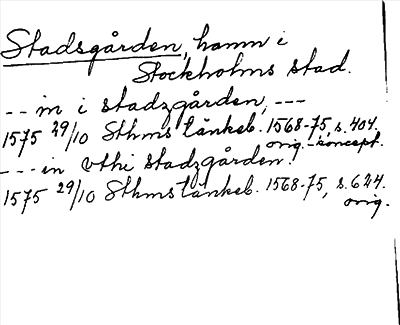 Stadsgården, hamn i
Stockholms stad.
-- in i stadzgården, ---
1575 29/10 Sthms tänkeb. 1568-75, s. 404.
orig.-koncept.
--- in vthi stadzgården.
1575 29/10 Sthms tänkeb. 1568-75, s. 624.
orig.